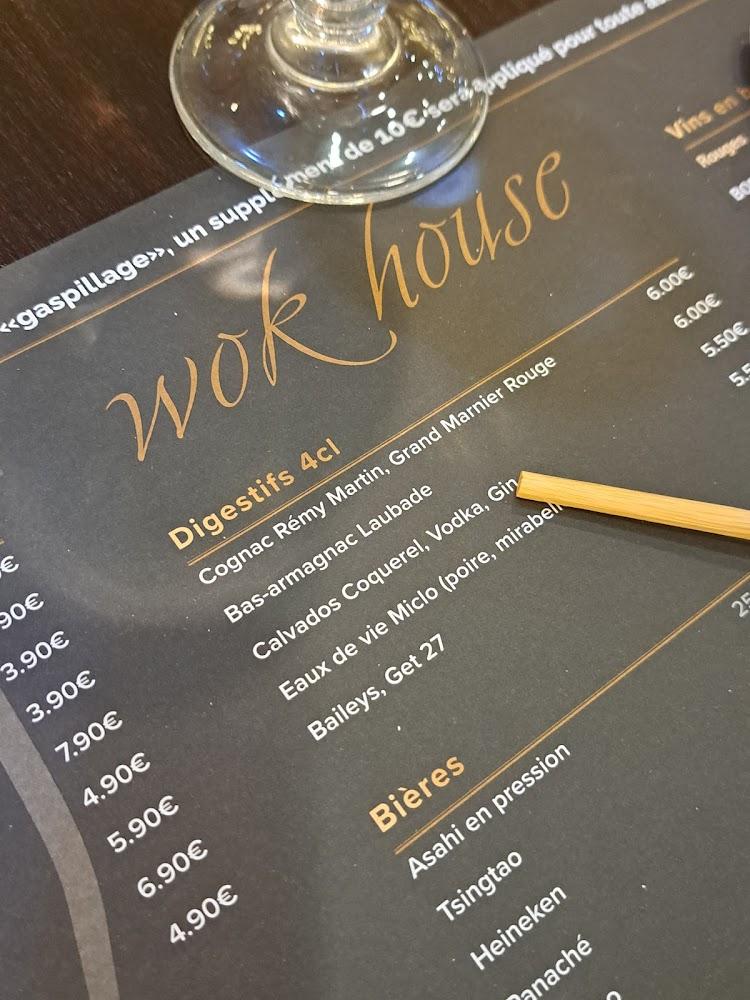 «gaspillage», un supplément de 10€ sera appliqué pour toute
wok house
Digestifs 4cl
Cognac Rémy Martin, Grand Marnier Rouge 6.00€
Bas-armagnac Laubade 6.00€
Calvados Coquerel, Vodka, Gin 5.50€
Eaux de vie Miclo (poire, mirabell
Baileys, Get 27
Bières
Asahi en pression
Tsingtao
Heineken
Panaché
Vins en
Rouges
3.90€
3.90€
7.90€
4.90€
5.90€
6.90€
4.90€